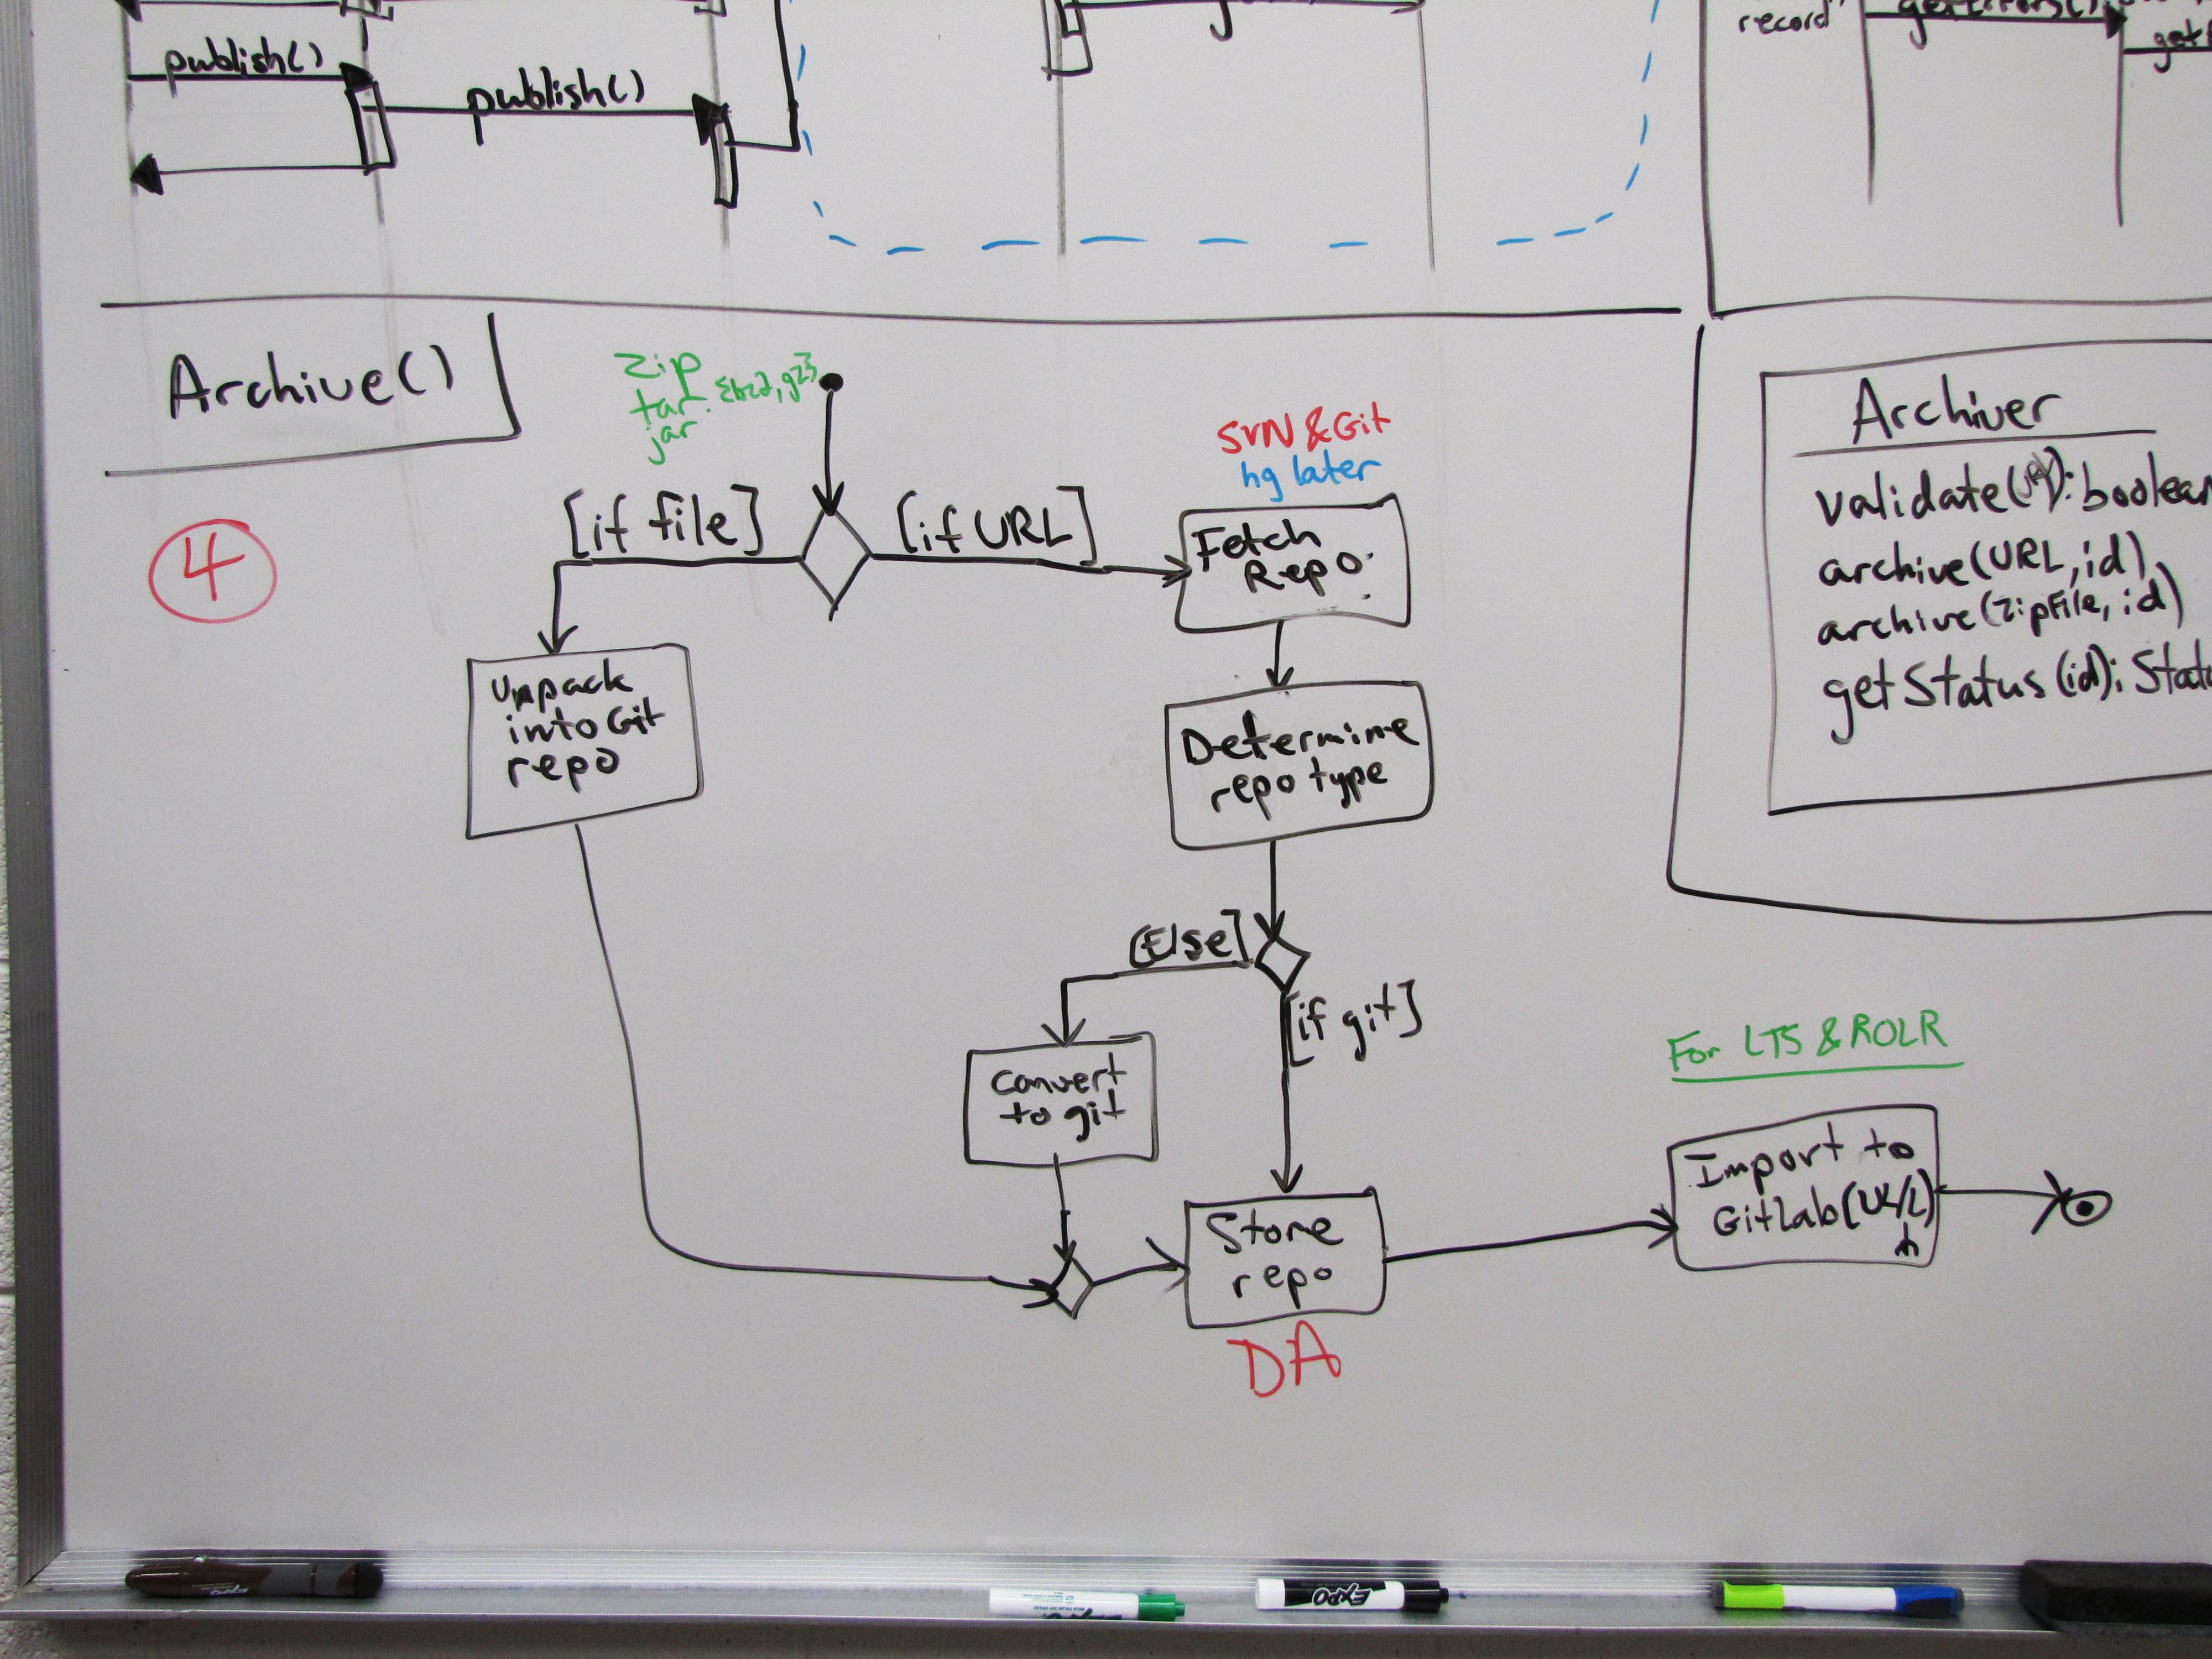 publish()
publish()
record"
getErrors()
get
Archive()
zip
tar.{bz2,gz}
jar
4
[if file]
[if URL]
SVN & Git
hg later
Fetch
Repo
Unpack
into Git
repo
Determine
repo type
[Else]
[if git]
convert
to git
Store
repo
DA
For LTS & ROLR
Import to
GitLab
Archiver
validate( ):boolean
archive(URL,id)
archive(ZipFile, id)
getStatus(id): Statu
EXPO